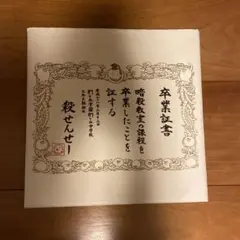 卒業証書
暗殺教室の課程を
卒業したことを
証する
殺せんせー